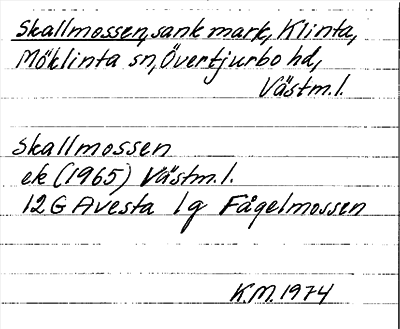 Skallmossen, sank mark, Klinta,
Möklinta sn, Övertjurbo hd,
Västm.l.
Skallmossen
ek (1965) Västm.l.
12G Avesta 1g Fågelmossen
K.M. 1974